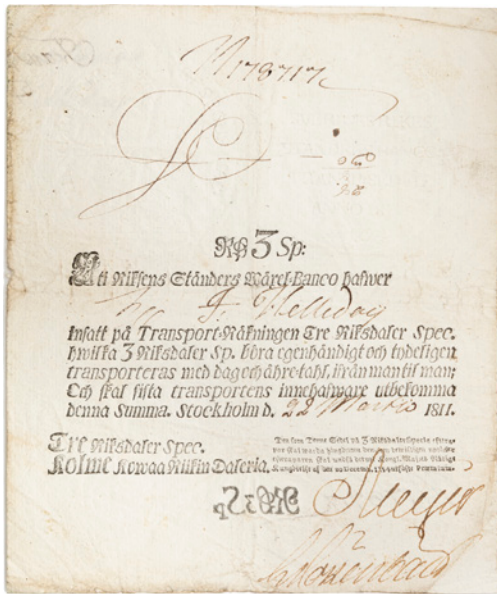 178717
Rdr 3 Sp:
Uti Riksens Ständers Wäxel-Banco hafwer
Hr F. Helleday
insatt på Transport-Räkningen Tre Riksdaler Spec.
hwilka 3 Riksdaler Sp. böra egenhändigt och tydeligen
transporteras med dag och åhre-tahl, ifrån man til man;
Och skal sista transportens innehafware utbekomma
denna Summa. Stockholm d. 22 Martii 1811.
Tre Riksdaler Spec.
Kolme Kowaa Riikin Daleria.
Meyer